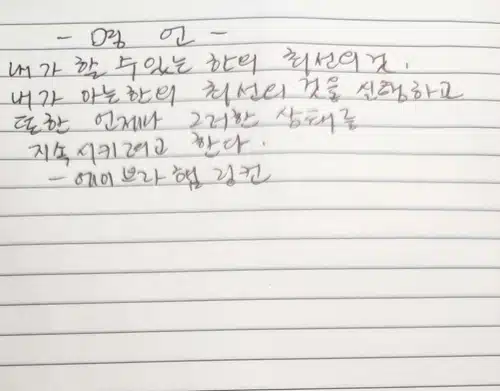 - 명 언 -
내가 할 수 있는 한의 최선의 것,
내가 아는 한의 최선의 것을 실행하고
또한 언제나 그러한 상태를
지속시키려고 한다.
- 에이브라햄 링컨